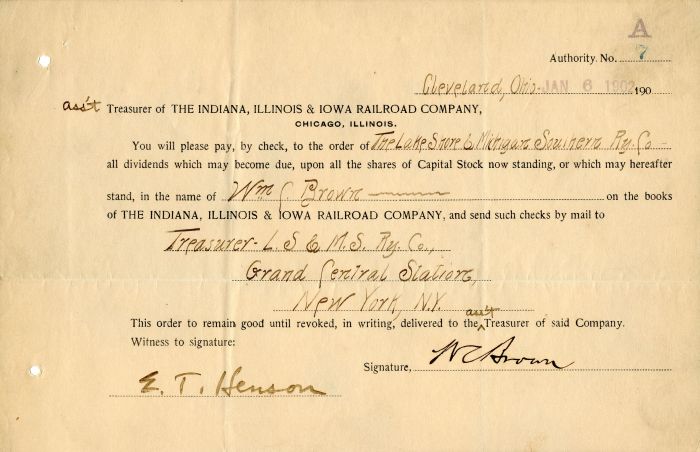 A
Authority. No. 7
Cleveland, Ohio JAN 6 1902 190
ass't Treasurer of THE INDIANA, ILLINOIS & IOWA RAILROAD COMPANY,
CHICAGO, ILLINOIS.
You will please pay, by check, to the order of The Lake Shore & Michigan Southern Ry. Co
all dividends which may become due, upon all the shares of Capital Stock now standing, or which may hereafter
stand, in the name of Wm C. Brown on the books
of THE INDIANA, ILLINOIS & IOWA RAILROAD COMPANY, and send such checks by mail to
Treasurer - L. S & M. S. Ry. Co.,
Grand Central Station,
New York, N.Y.
This order to remain good until revoked, in writing, delivered to the ass't Treasurer of said Company.
Witness to signature:
Signature, W C Brown
E. T. Henson